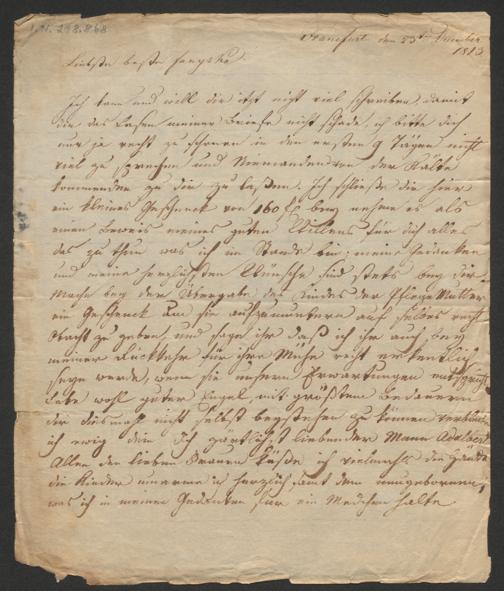 I.N. 248.868
Frankfurt den 23ten December
1813
Liebste beste Fanyska.
Ich kann und will dir itzt nicht viel schreiben, damit
dir das Lesen meiner Briefe nicht schade, ich bitte dich
nur ja recht zu schonen in den ersten 9 Tägen nicht
viel zu sprechen und Niemanden von der Kälte
kommenden zu dir zu lassen. Ich schließe dir hier
ein kleines Geschenck von 160 f bey nehme es als
einen Beweis meines guten Willens für dich alles
das zu thun was ich im Stande bin, meine Gedanken
und meine herzlichsten Wünsche sind stets bey dir.
Mache bey der Übergabe des Kindes der Pflege Mutter
ein Geschenck um sie aufzumuntern auf selbes recht
Obacht zu geben, und sage ihr daß ich ihr auch bey
meiner Rückkehr für ihre Mühe recht erkentlich
seyn werde, wenn sie unsern Erwartungen entspricht
Lebe wohl guter Engel mit größtem Bedauern
dir diesmahl nicht selbst beystehen zu können verbleibe
ich ewig dein dich zärtlichst liebender Mann Adalbert
Allen den lieben Frauen küße ich vielmahls die Hände
die Kinder umarme ich herzlich samt dem neugebornen,
was ich in meinen Gedanken für ein Mädchen halte